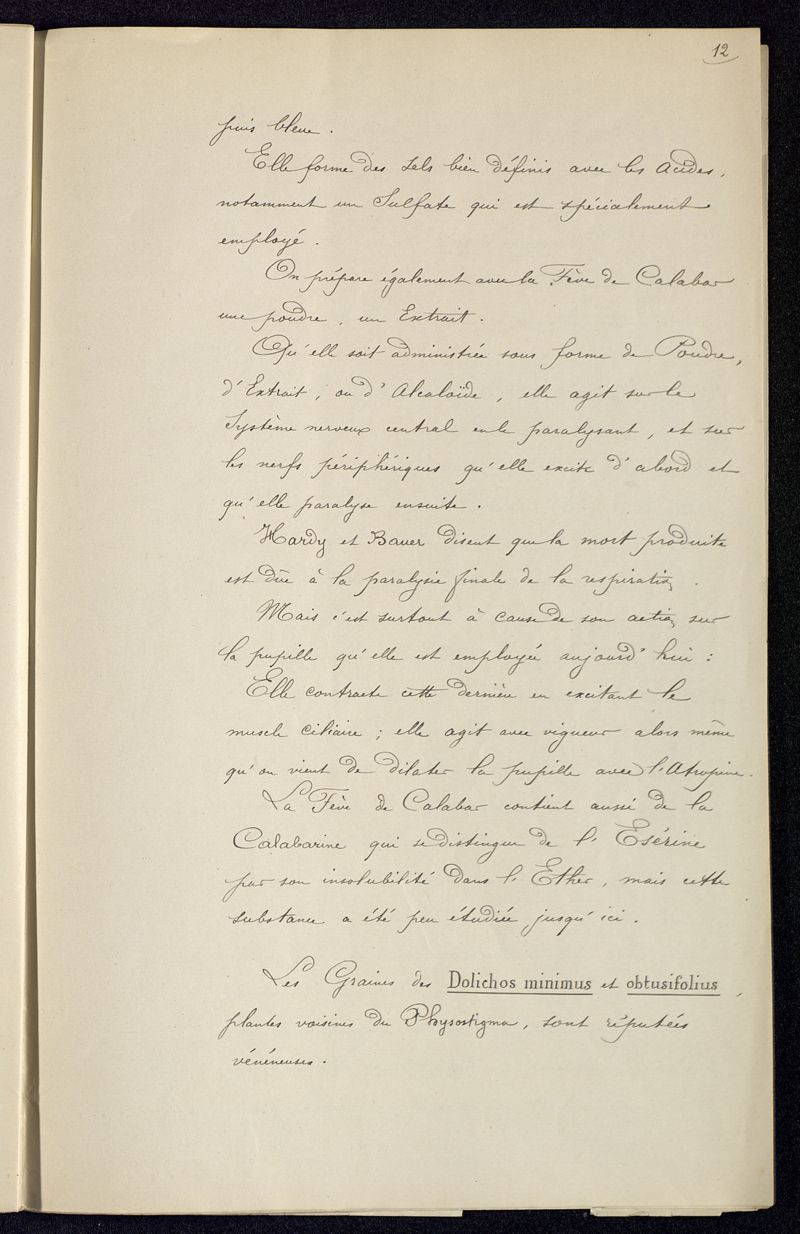 12
puis bleue.
Elle forme des sels bien définis avec les acides,
notamment un Sulfate qui est spécialement
employé.
On prépare également avec la Fève de Calabar
une poudre, un Extrait.
Qu'elle soit administrée sous forme de Poudre,
d'Extrait, ou d'Alcaloïde, elle agit sur le
Système nerveux central en le paralysant, et sur
les nerfs périphériques qu'elle excite d'abord et
qu'elle paralyse ensuite.
Hardy et Bauer disent que la mort produite
est dûe à la paralysie finale de la respiration.
Mais c'est surtout à cause de son action sur
la pupille qu'elle est employée aujourd'hui :
Elle contracte cette dernière en excitant le
muscle ciliaire ; elle agit avec vigueur alors même
qu'on vient de dilater la pupille avec l'Atropine.
La Fève de Calabar contient aussi de la
Calabarine qui se distingue de l'Esérine
par son insolubilité dans l'Ether, mais cette
substance a été peu étudiée jusqu'ici.
Les Graines des Dolichos minimus et obtusifolius,
plantes voisines du Physostigma, sont réputées
vénéneuses.